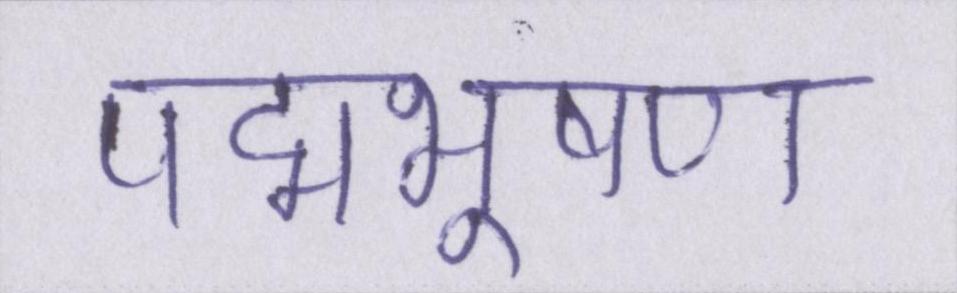 पद्मभूषण